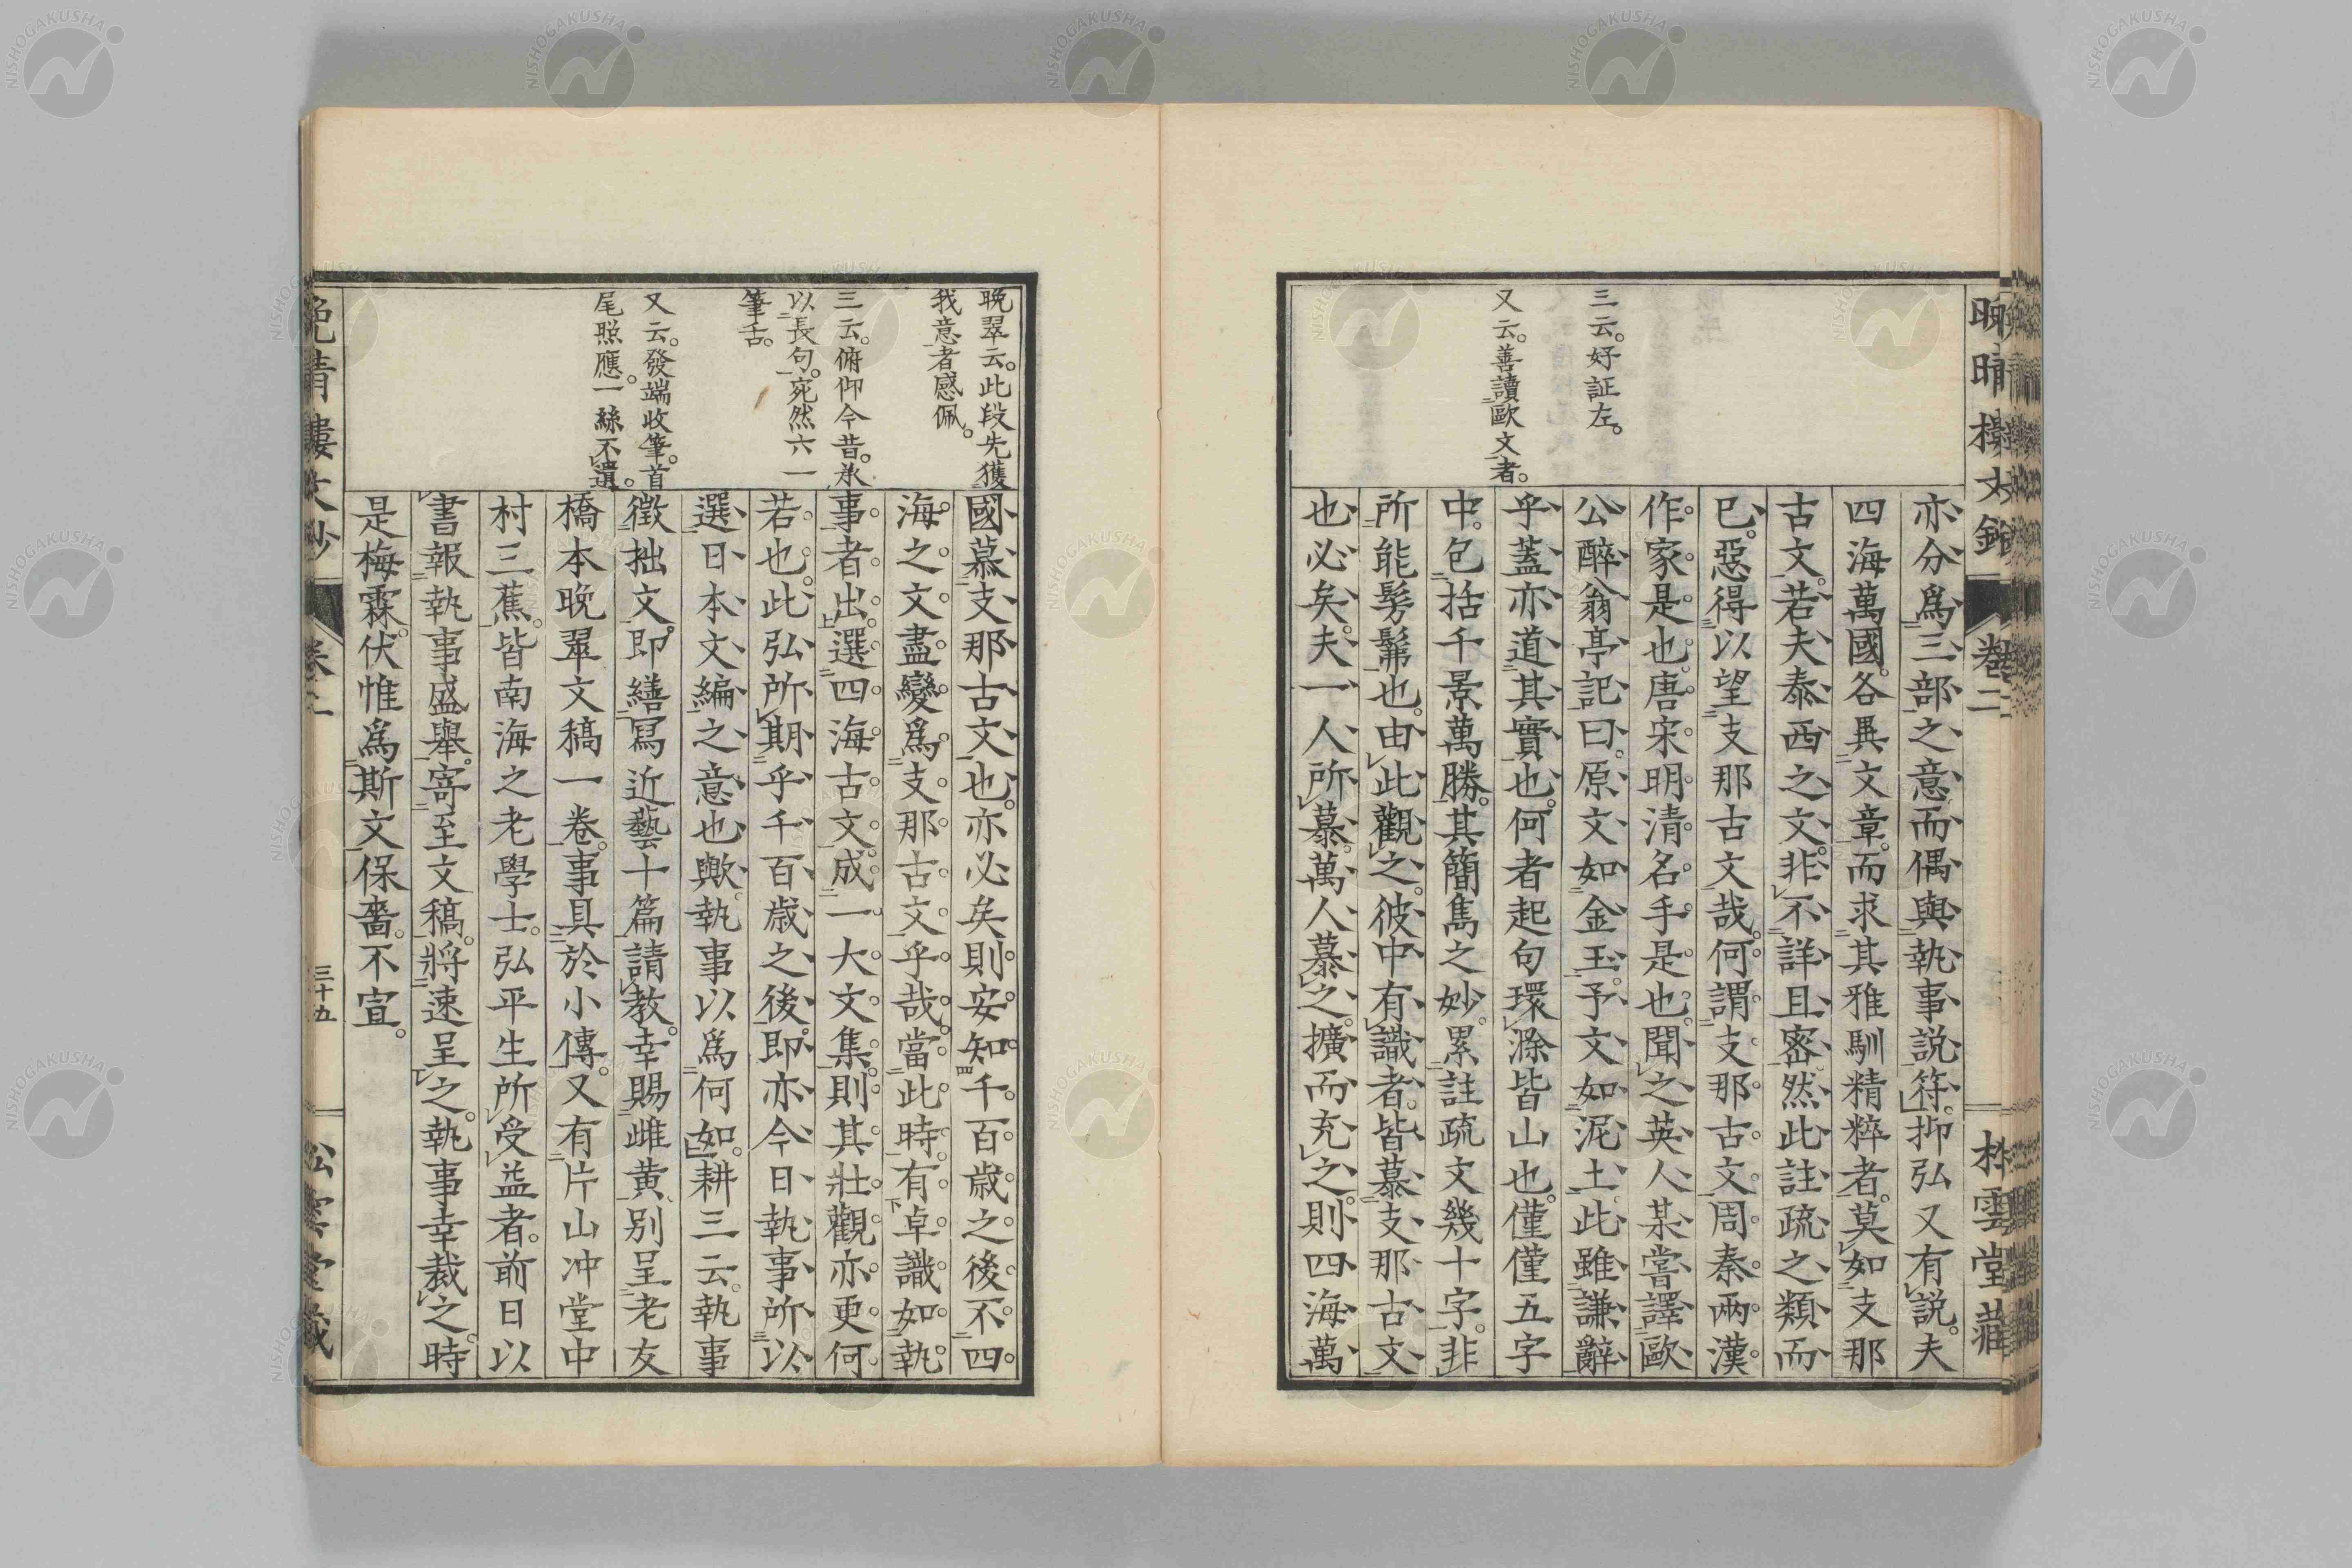 晩晴樓文鈔
卷二
松雲堂藏
三云。好証左。
又云。善讀歐文者。
亦分爲三部之意而偶與執事説符。抑弘又有説。夫
四海萬國。各異文章。而求其雅馴精粹者。莫如支那
古文。若夫泰西之文。非不詳且密。然此註疏之類而
已。惡得以望支那古文哉。何謂支那古文。周秦兩漢
作家是也。唐宋明清名手是也。聞之英人某嘗譯歐
公醉翁亭記曰。原文如金玉。予文如泥土。此雖謙辭
乎。蓋亦道其實也。何者起句環滁皆山也。僅僅五字
中。包括千景萬勝。其簡雋之妙。累註疏文幾十字。非
所能髣髴也。由此觀之。彼中有識者。皆慕支那古文
也必矣。夫一人所慕萬人慕之。擴而充之。則四海萬
晩翠云。此段先獲
我意者感佩。
三云。俯仰今昔。承
以長句。宛然六一
筆舌。
又云。發端收筆。首
尾照應。一絲不遺。
國慕支那古文也。亦必矣。則安知千百歳之後。不四
海之文。盡變爲支那古文乎哉。當此時。有卓識如執
事者出。選四海古文。成一大文集。則其壯觀亦更何
若也。此弘所期乎千百歳之後。即亦今日執事所以
選日本文編之意也歟。執事以爲何如。耕三云。執事
徵拙文。即繕冩近藝十篇請教。幸賜雌黄。别呈老友
橋本晩翠文稿一卷。事具於小傳。又有片山冲堂中
村三蕉。皆南海之老學士。弘平生所受益者。前日以
書報執事盛舉。寄至文稿。將速呈之。執事幸裁之。時
是梅霖。伏惟爲斯文保嗇。不宣。
晩晴樓文鈔
卷二
三十五
松雲堂藏